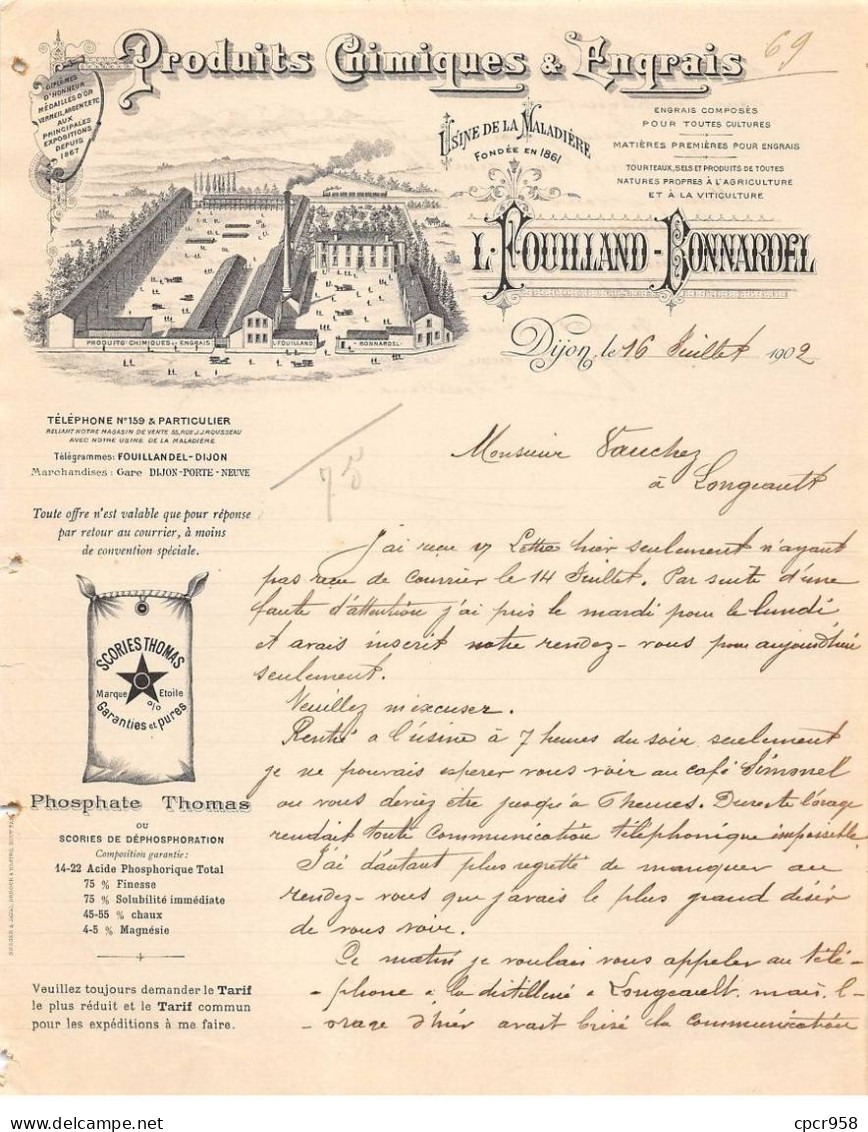 Produits Chimiques & Engrais
69
DIPLÔMES
D'HONNEUR
MÉDAILLES D'OR
VERMEIL, ARGENT, ETC
AUX
PRINCIPALES
EXPOSITIONS
DEPUIS
1867
USINE DE LA MALADIÈRE
FONDÉE EN 1861
ENGRAIS COMPOSÉS
POUR TOUTES CULTURES
MATIÈRES PREMIÈRES POUR ENGRAIS
TOURTEAUX, SELS ET PRODUITS DE TOUTES
NATURES PROPRES À L'AGRICULTURE
ET À LA VITICULTURE
L. FOUILLAND-BONNARDEL
PRODUITS CHIMIQUES ET ENGRAIS L. FOUILLAND - BONNARDEL
Dijon, le 16 Juillet 1902
TÉLÉPHONE Nº 159 & PARTICULIER
RELIANT NOTRE MAGASIN DE VENTE 55, RUE J.J. ROUSSEAU
AVEC NOTRE USINE DE LA MALADIÈRE
Télégrammes: FOUILLANDEL-DIJON
Marchandises : Gare DIJON-PORTE-NEUVE
75
Toute offre n'est valable que pour réponse
par retour au courrier, à moins
de convention spéciale.
SCORIES THOMAS
Marque Etoile
%
Garanties et pures
Phosphate Thomas
OU
SCORIES DE DÉPHOSPHORATION
Composition garantie :
14-22 Acide Phosphorique Total
75 % Finesse
75 % Solubilité immédiate
45-55 % chaux
4-5 % Magnésie
Veuillez toujours demander le Tarif
le plus réduit et le Tarif commun
pour les expéditions à me faire.
Monsieur Vauchez
à Longeault
J'ai reçu v/ Lettre hier seulement n'ayant
pas reçu de courrier le 14 Juillet. Par suite d'une
faute d'attention j'ai pris le mardi pour le lundi
et avais inscrit notre rendez-vous pour aujourd'hui
seulement.
Veuillez m'excuser.
Rentré a l'usine à 7 heures du soir seulement
je ne pouvais espérer vous voir au café Simonel
ou vous deviez être jusqu'à 6 heures. Du reste l'orage
rendait toute communication téléphonique impossible.
J'ai d'autant plus regretté de manquer au
rendez-vous que j'avais le plus grand désir
de vous voir.
Ce matin je voulais vous appeler au télé-
-phone a la distillerie a Longeault, mais l'-
-orage d'hier avait brisé la communication
cpcr958